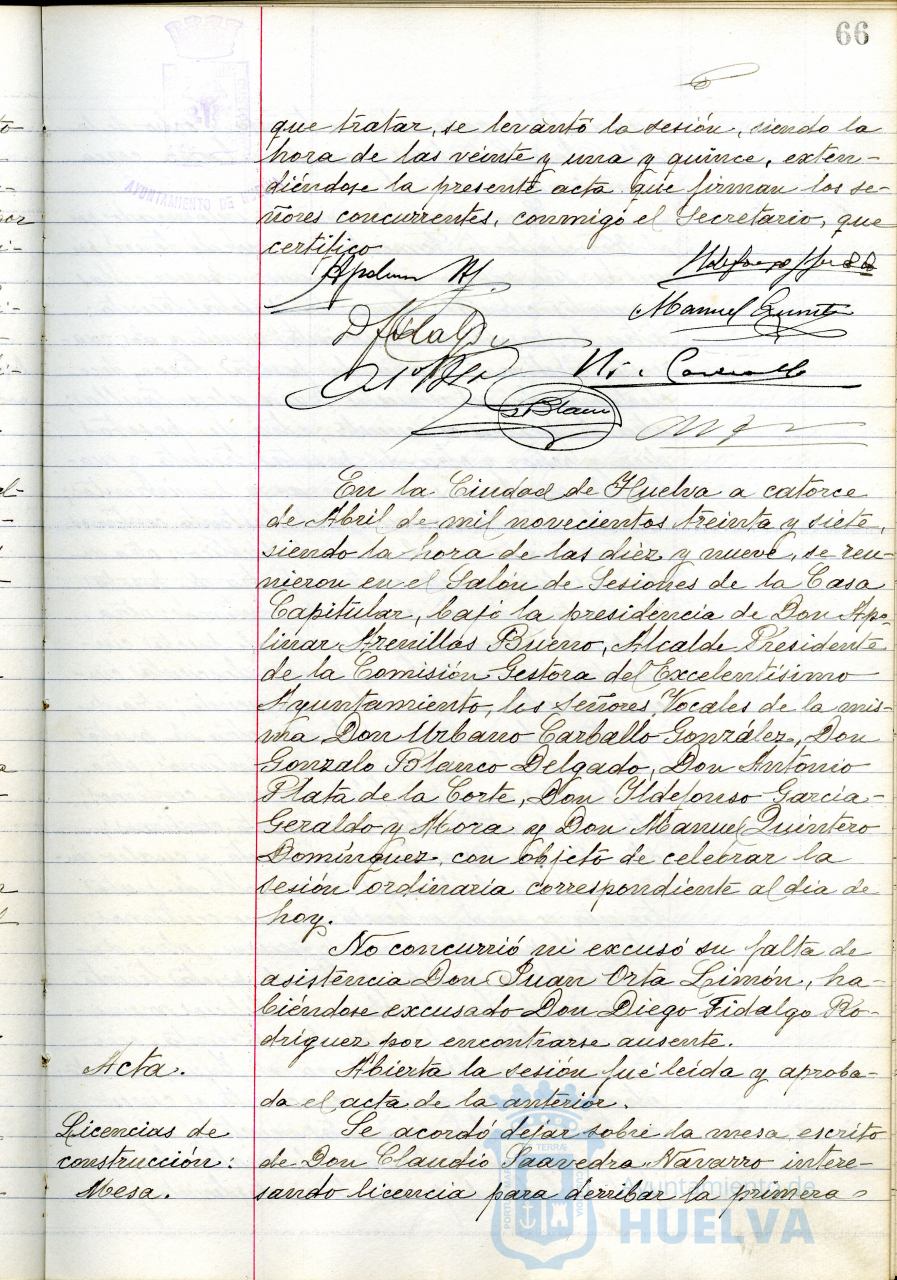 66
que tratar, se levantó la sesión, siendo la
hora de las veinte y una y quince, exten-
diéndose la presente acta que firman los se-
ñores concurrentes, conmigo el Secretario, que
certifico
Manuel Quintero
D Fidalgo
U. Carvallo
G Blanco
En la Ciudad de Huelva a catorce
de Abril de mil novecientos treinta y siete,
siendo la hora de las diez y nueve, se reu-
nieron en el Salón de Sesiones de la Casa
Capitular, bajo la presidencia de Don Apo-
linar Arenillas Bueno, Alcalde Presidente
de la Comisión Gestora del Excelentísimo
Ayuntamiento, los señores Vocales de la mis-
ma Don Urbano Carballo González, Don
Gonzalo Blanco Delgado, Don Antonio
Plata de la Corte, Don Ildefonso García-
Geraldo y Mora y Don Manuel Quintero
Domínguez, con objeto de celebrar la
sesión ordinaria correspondiente al día de
hoy.
No concurrió ni excusó su falta de
asistencia Don Juan Orta Limón, ha-
biéndose excusado Don Diego Fidalgo Ro-
dríguez por encontrarse ausente.
Acta.
Abierta la sesión fué leída y aproba-
da el acta de la anterior.
Licencias de
construcción:
Mesa.
Se acordó dejar sobre la mesa escrito
de Don Claudio Saavedra Navarro intere-
sando licencia para derribar la primera
AYUNTAMIENTO DE
Ayuntamiento de
HUELVA